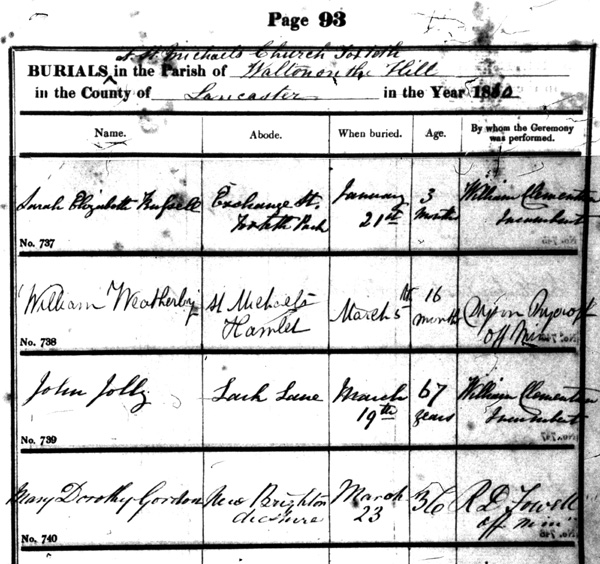 Page 93
at St. Michaels Church Toxteth
BURIALS in the Parish of Walton on the Hill
in the County of Lancaster in the Year 1850
Name. Abode. When buried. Age. By whom the Ceremony was performed.
Sarah Elizabeth Exchange St. Toxteth Park January 21st 3 month William Incumbent
No. 737
William Weatherby St Michaels Hamlet March 5th 16 month off Min
No. 738
John Jolly Lark Lane March 19th 67 years William Incumbent
No. 739
Mary Dorothy Gordon New Brighton March 23 36 R D off min
No. 740